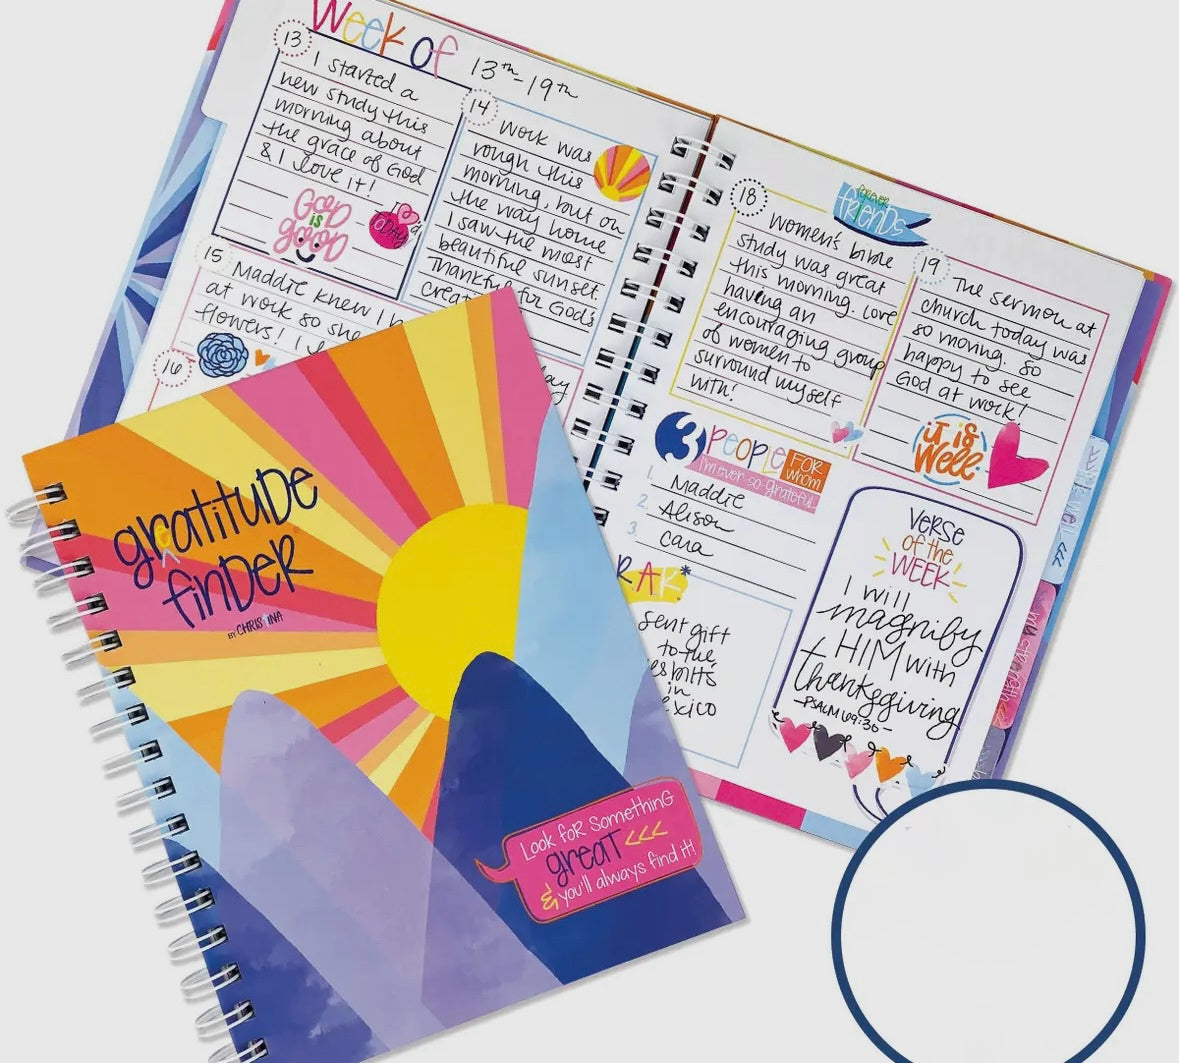 Week of 13th-19th
13
I started a
new study this
morning about
the grace of God
& I love it!
GOD
is
good
14
Work was
rough this
morning, but on
the way home
I saw the most
beautiful sunset.
Thankful for God's
15
Maddie knew I
at work so she
flowers! I
16
18
FOREVER
friends
Women's bible
study was great
this morning. Love
having an
encouraging group
of women to
surround myself
with!
19
The sermon at
church today was
so moving. So
happy to see
God at work!
iT is
Well
3 PEOPLE FOR whom
I'm ever-so-grateful
1. Maddie
2. Alison
3. Cara
RAK*
sent gift
to the
in
VERSE
OF THE
WEEK
I will
magnify
HIM with
thanksgiving
-PSALM 69:30-
gratitude
finder
BY CHRISTINA
Look for something
great <<<
& you'll always find it!